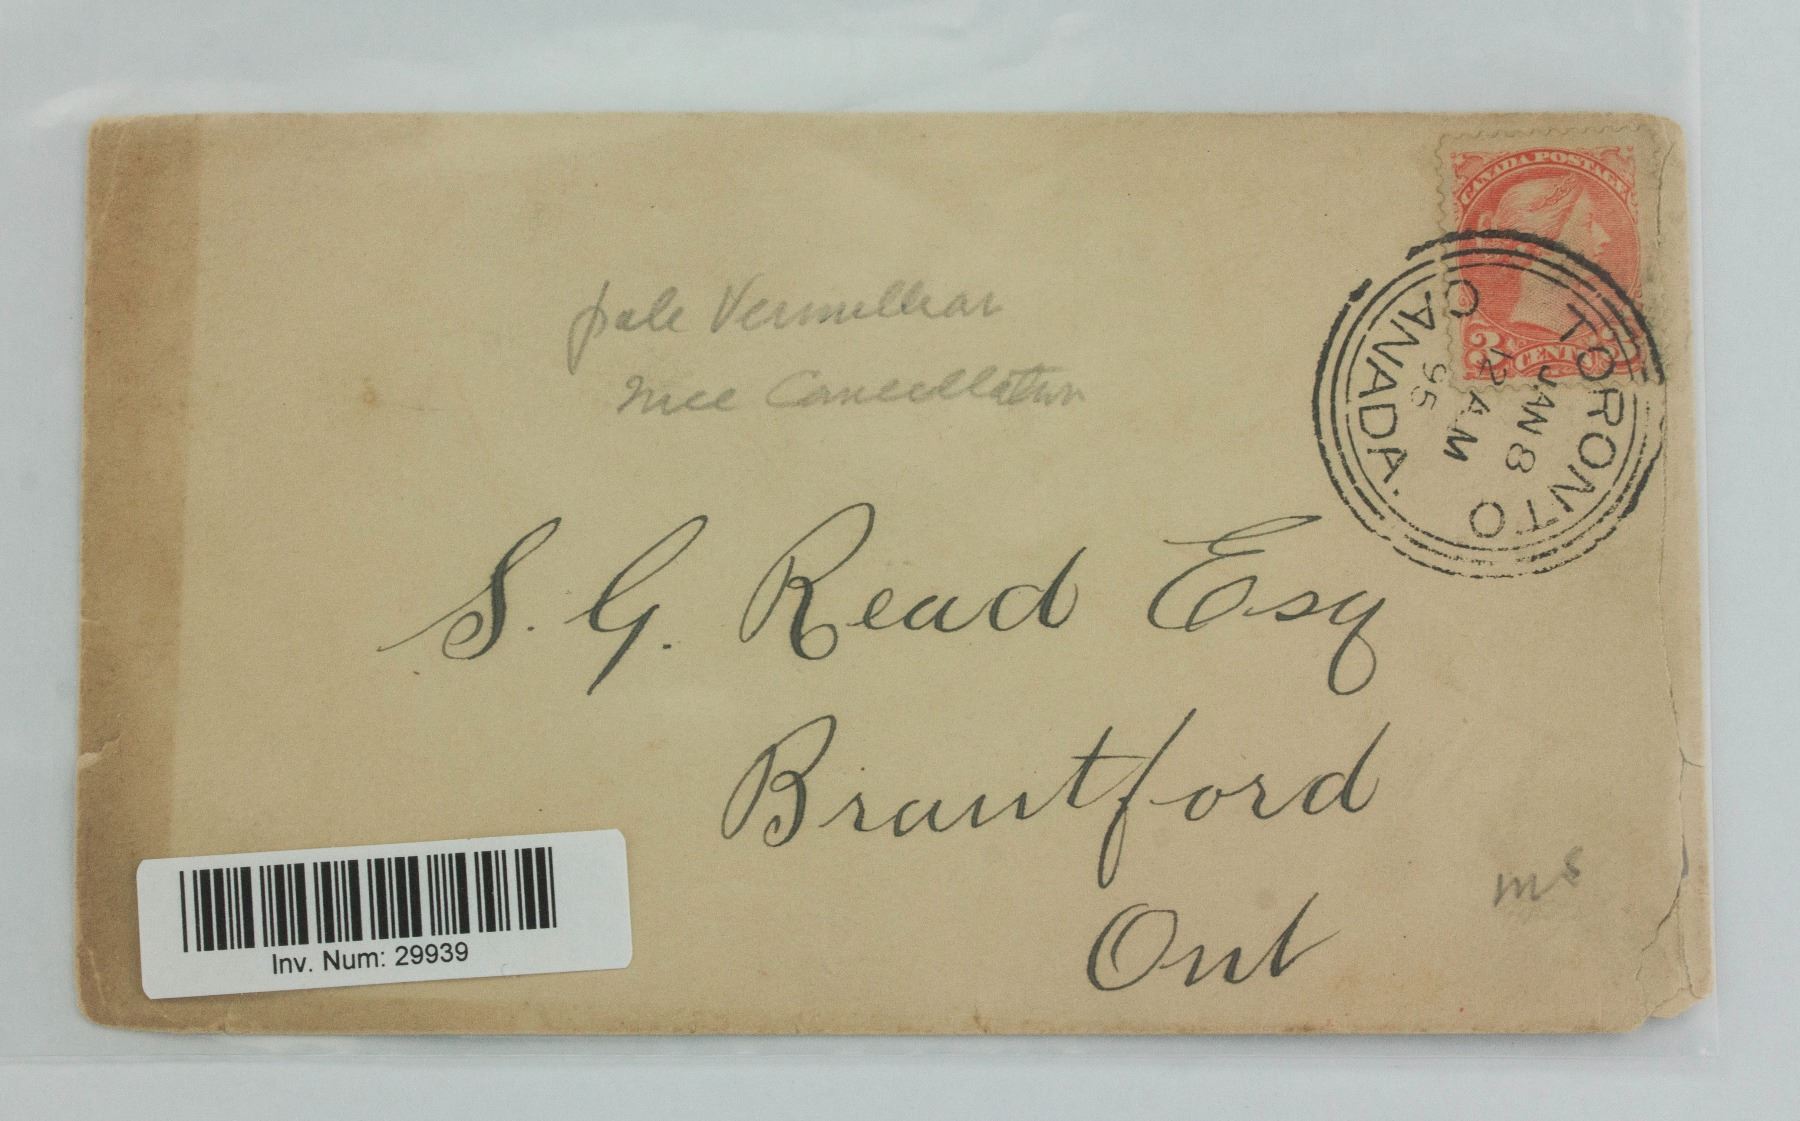 CANADA POSTAGE
3 CENTS 3
TORONTO
JAN 8
12 AM
95
CANADA.
pale Vermillion
nice Cancellation
S. G. Read Esq
Brantford
Ont
ms
Inv. Num: 29939